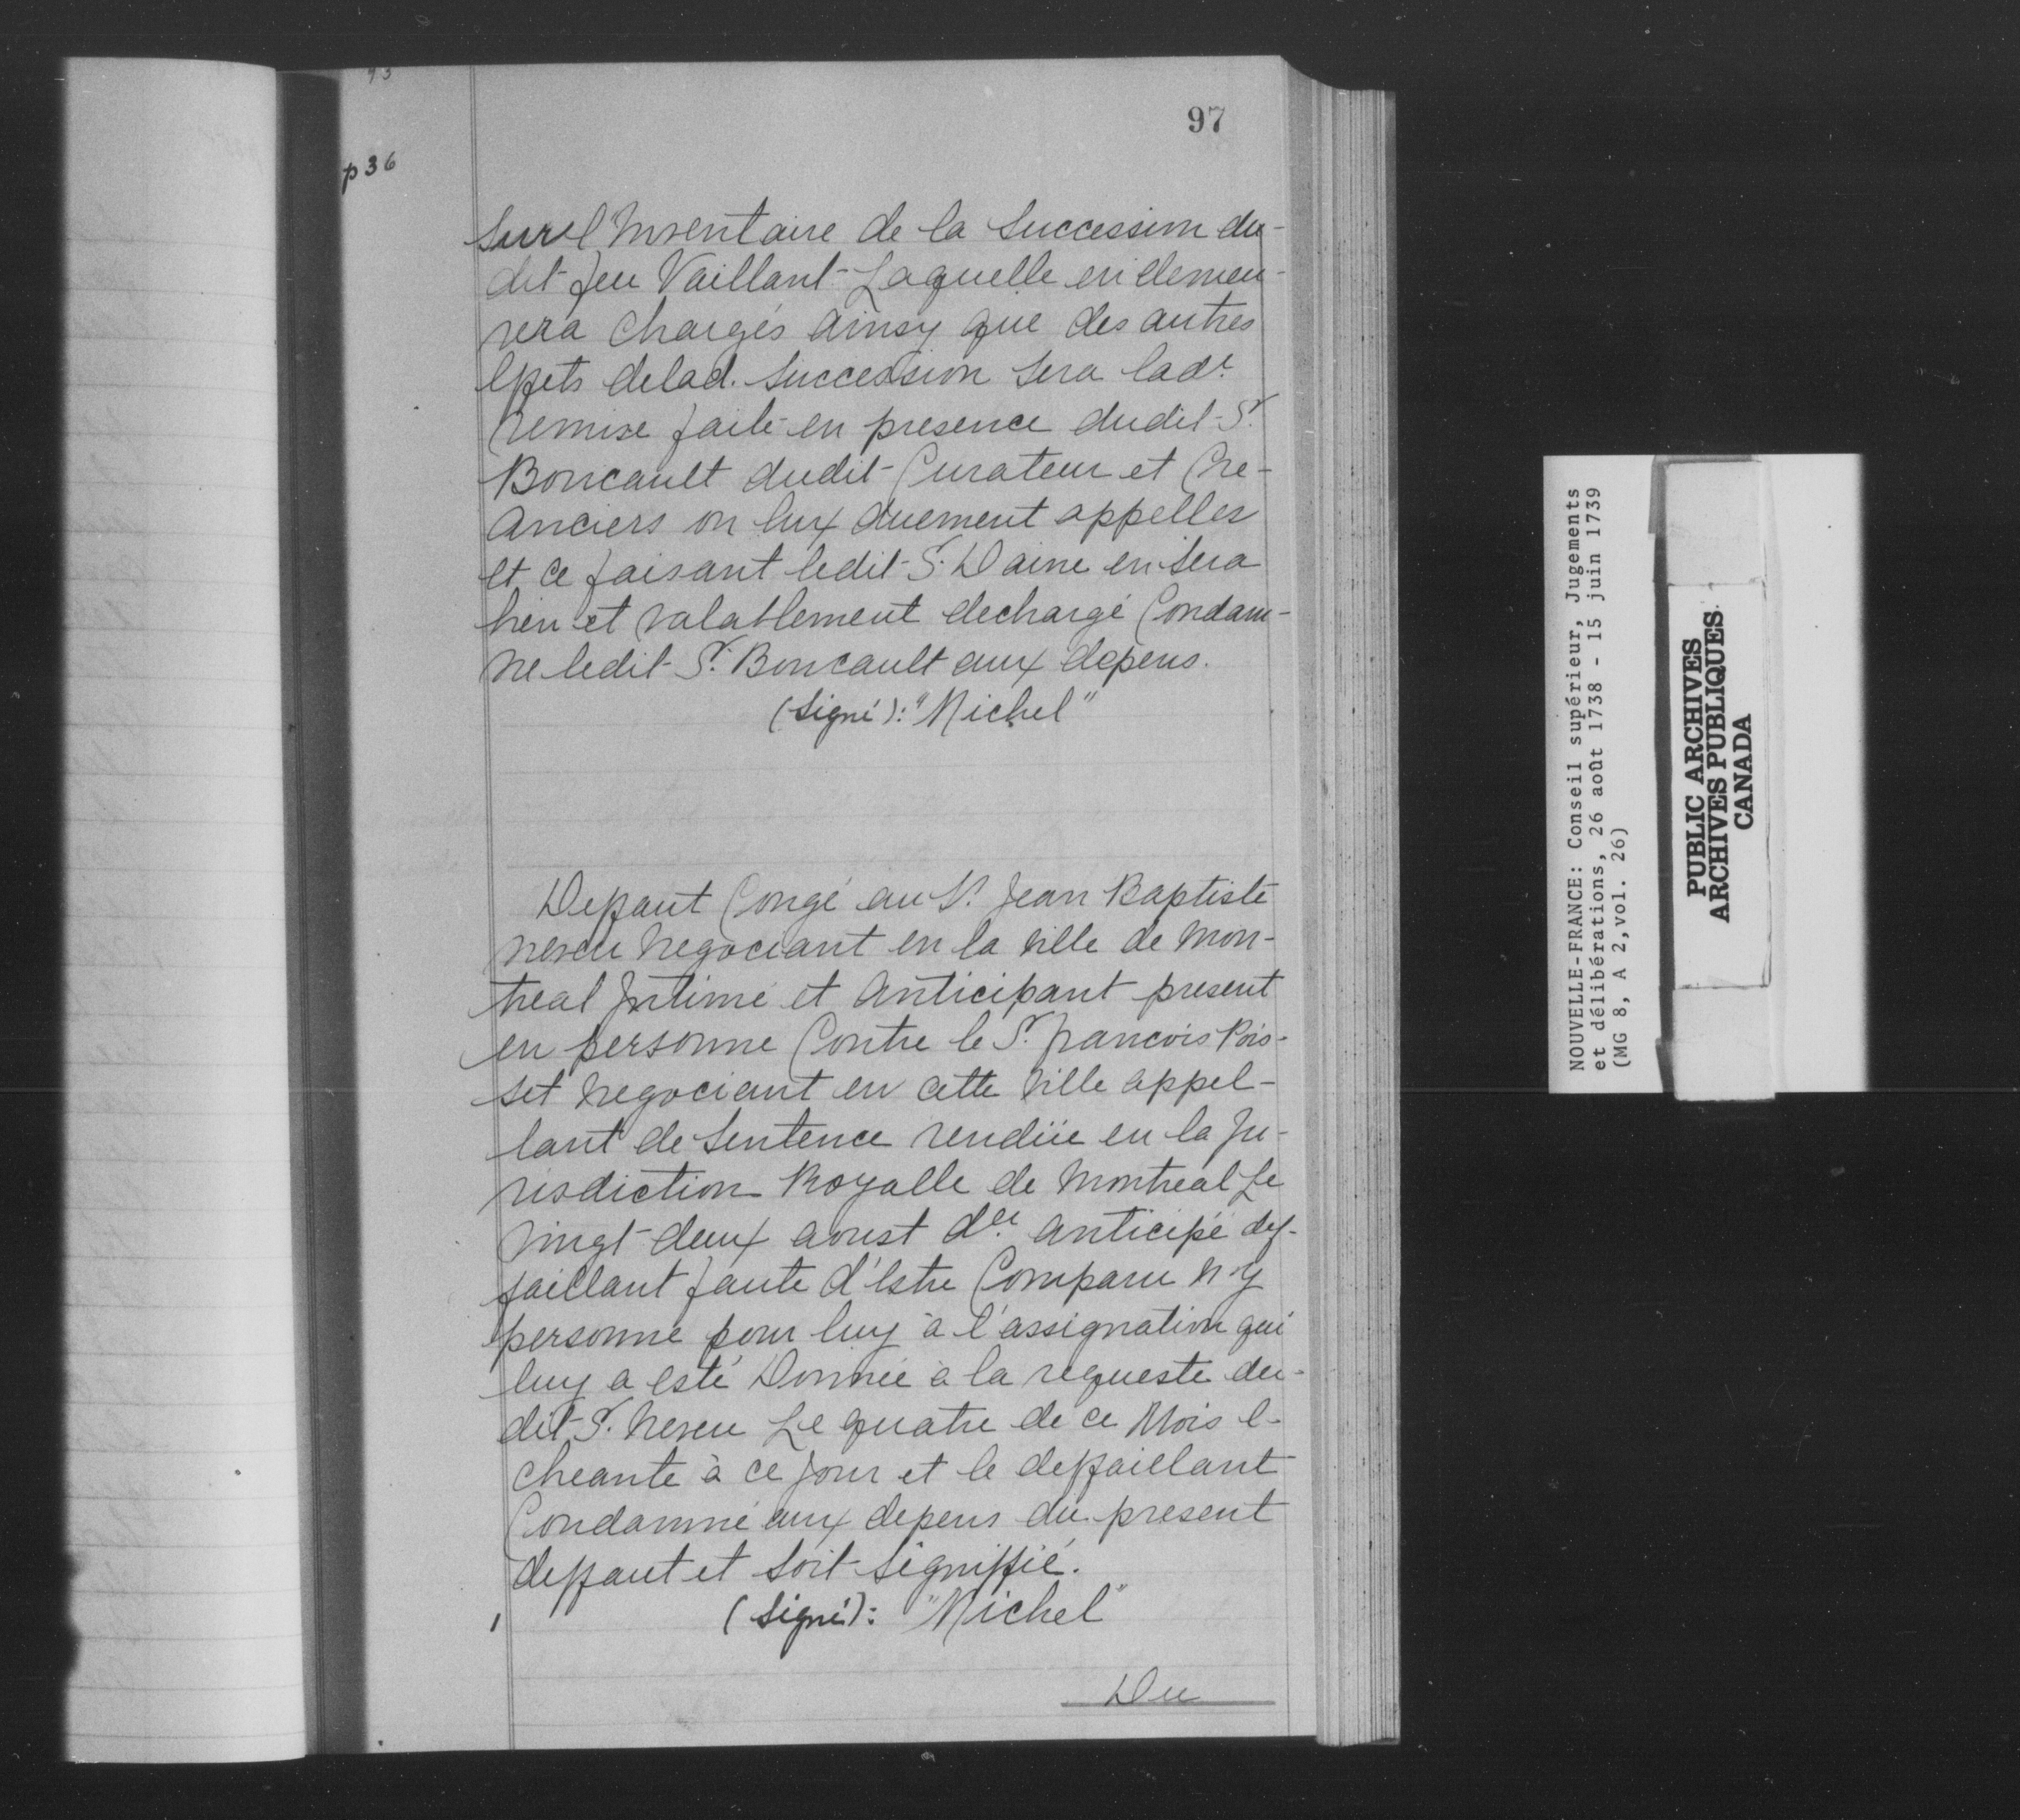 97
p 36
Sur l'Inventaire de la Succession du-
dit feu Vaillant Laquelle en demeu-
rera Chargés ainsy que des autres
effets delad. Succession Sera lad.e
Remise faite en presence dudit Sr.
Boucault dudit Curateur et Cre-
anciers ou Eux duement appelles
et ce faisant ledit Sr. Daine en Sera
bien et valablement dechargé Condam-
ne ledit Sr. Boucault aux depens.
(Signé): "Michel"
Deffaut Congé au Sr. Jean Baptiste
neveu Negociant en la Ville de Mon-
treal Intimé et Anticipant present
en personne Contre le Sr. francois Pois-
set Negociant en cette Ville appel-
lant de Sentence rendüe en la Ju-
risdiction Royalle de Montreal Le
Vingt deux aoust der. anticipé def-
faillant faute d'Estre Comparu n'y
personne pour luy à l'assignation qui
luy a esté Donnée à la requeste du-
dit Sr. Neveu Le quatre de ce Mois e-
cheante à ce Jour et le deffaillant
Condamné aux depens du present
deffaut et Soit Signiffié.
(Signé): "Michel"
Du
NOUVELLE-FRANCE: Conseil supérieur, Jugements
et délibérations, 26 août 1738 - 15 juin 1739
(MG 8, A 2, vol. 26)
PUBLIC ARCHIVES
ARCHIVES PUBLIQUES
CANADA